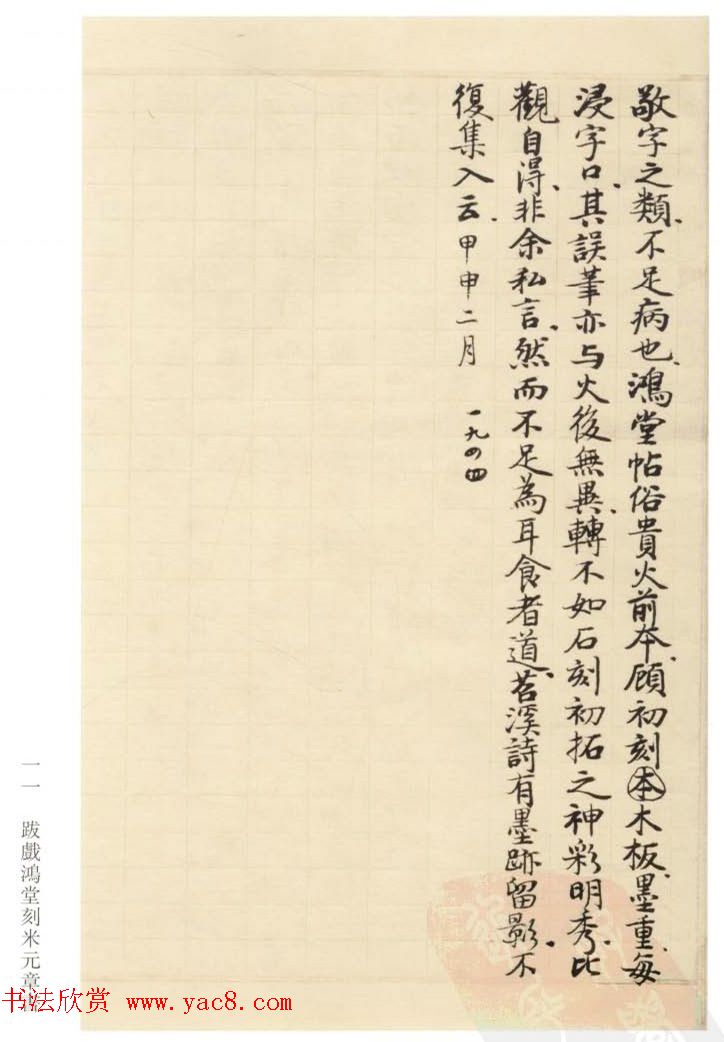 敬字之類、不足病也、鴻堂帖俗貴火前本、顧初刻本木板、墨重、每
浸字口、其誤筆亦与火後無異、轉不如石刻初拓之神彩明秀、比
觀自得、非余私言、然而不足為耳食者道、苕溪詩有墨跡留影、不
復集入云、甲申二月 一九四四
一一 跋戲鴻堂刻米元章
书法欣赏 www.yac8.com